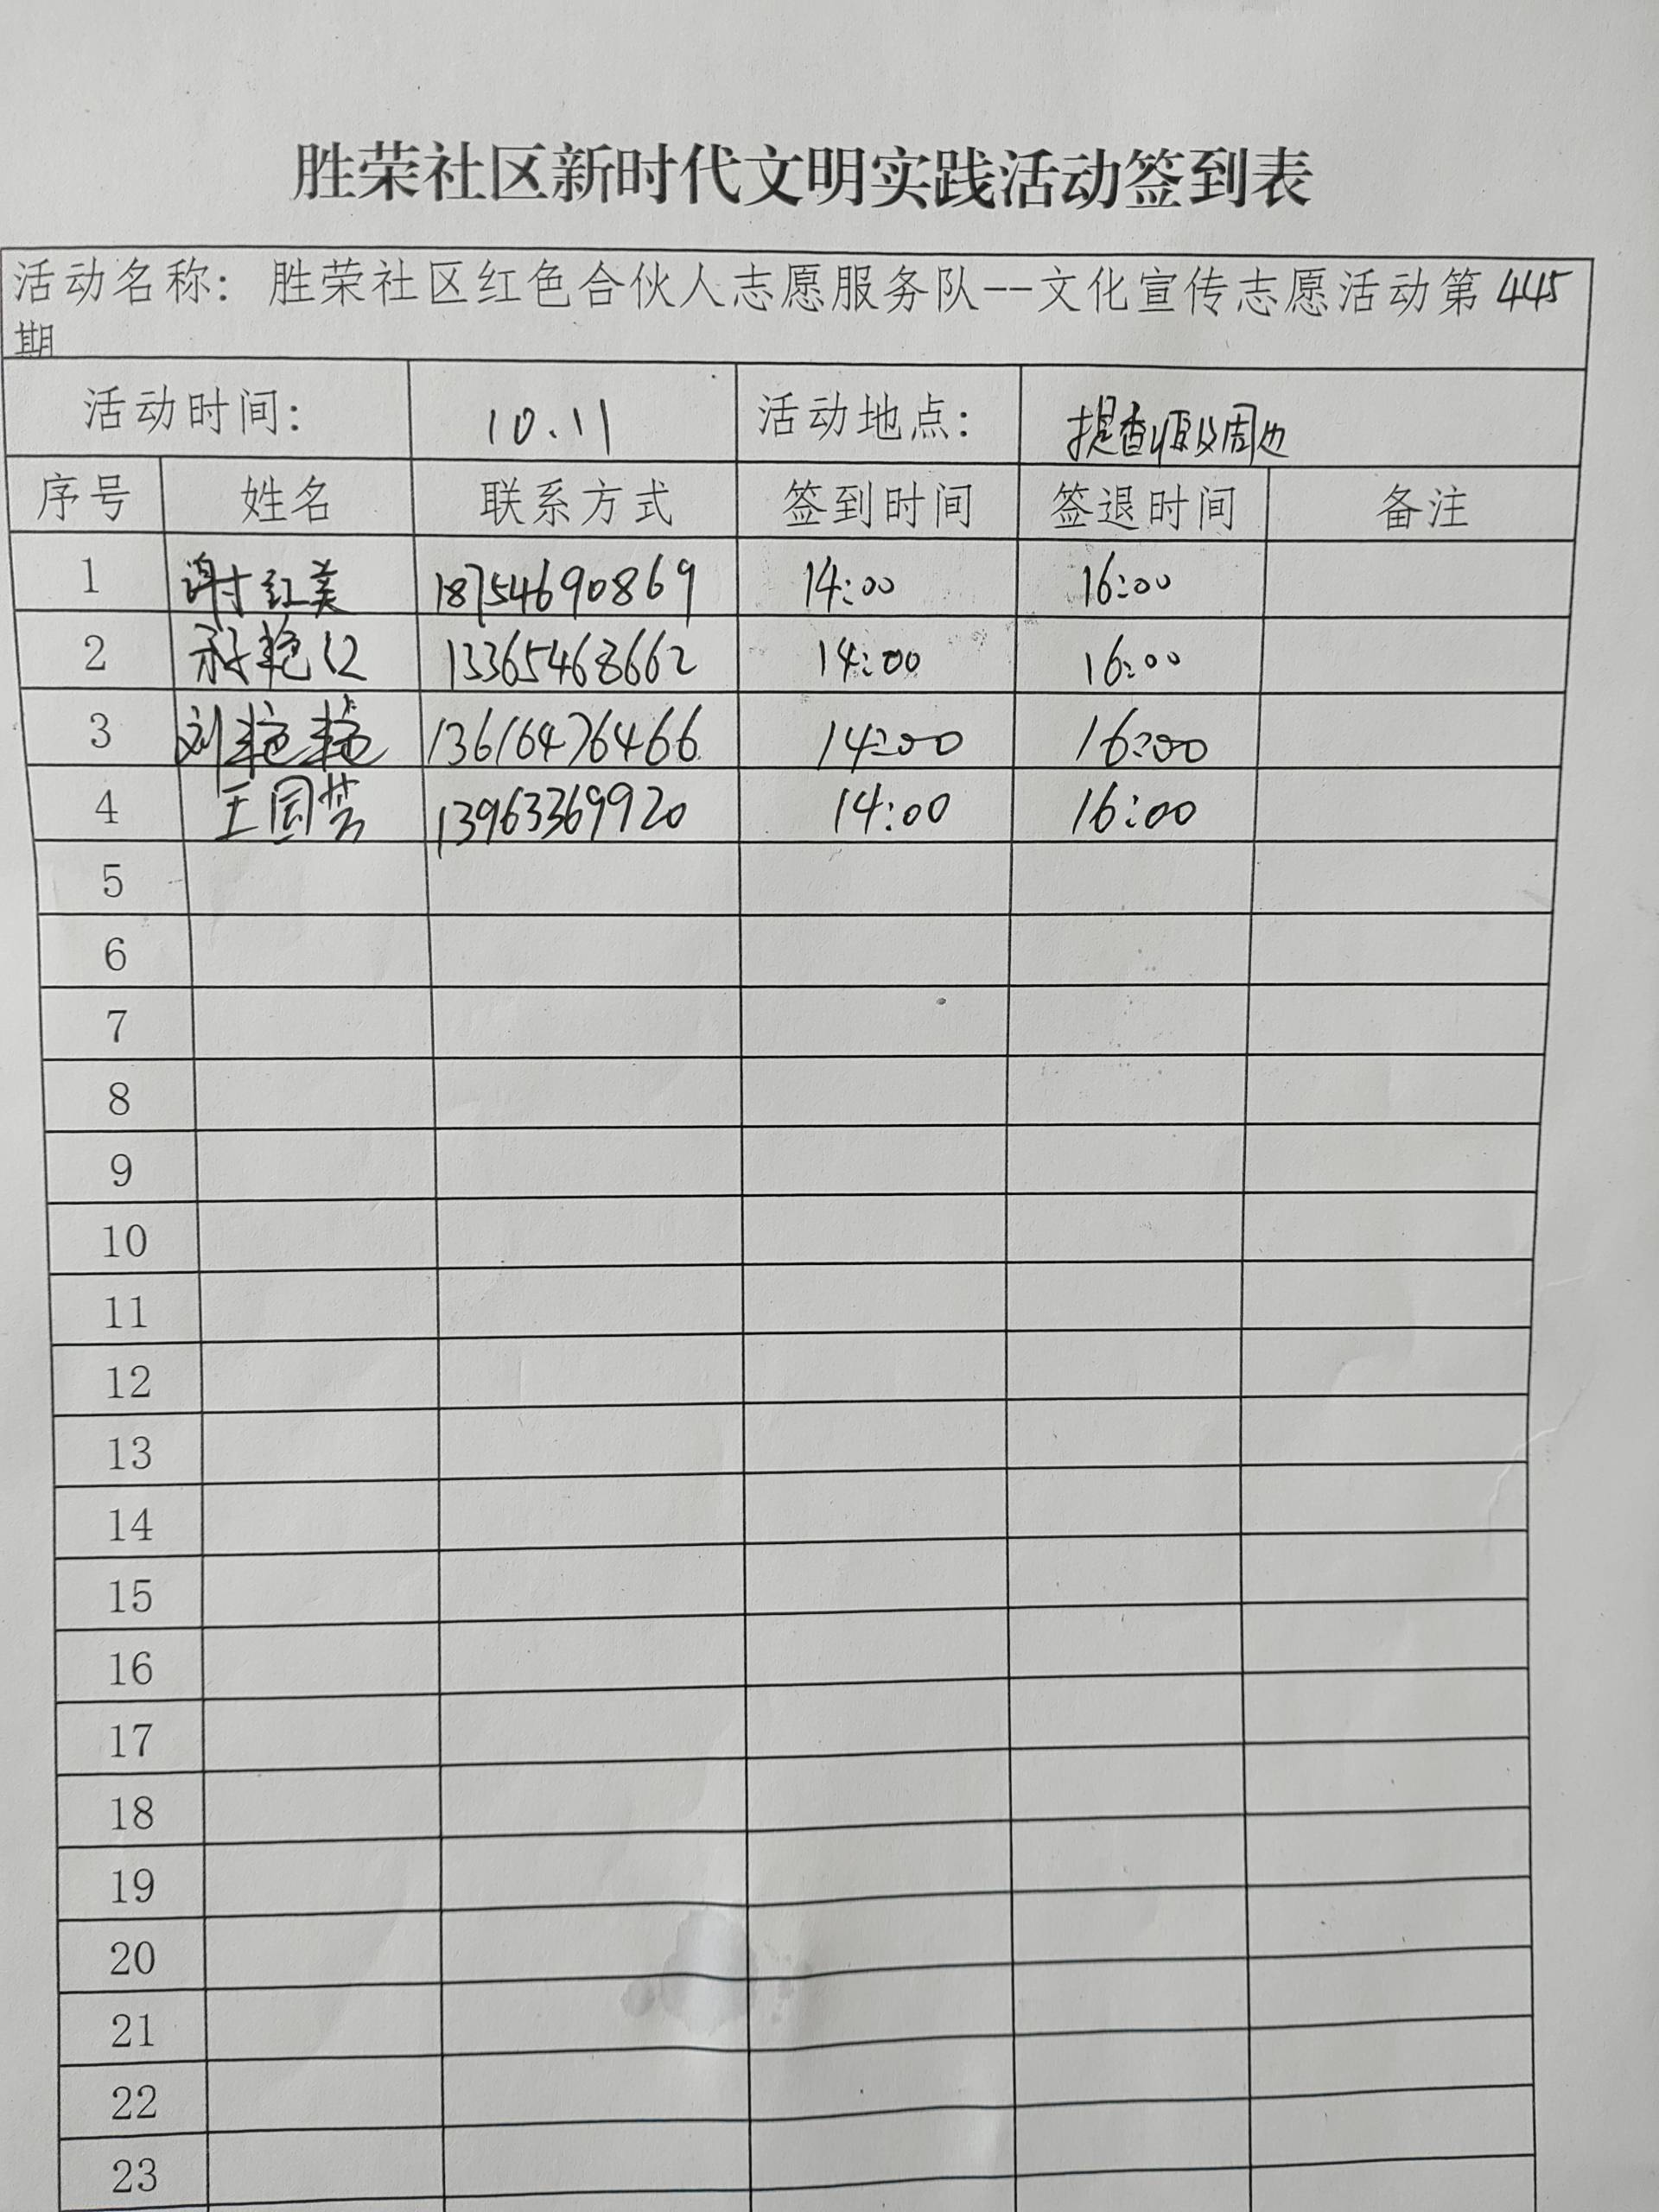 胜荣社区新时代文明实践活动签到表
活动名称：胜荣社区红色合伙人志愿服务队--文化宣传志愿活动第445
期
活动时间： 10.11 活动地点： 提香源及周边
序号 姓名 联系方式 签到时间 签退时间 备注
1 谢红美 18754690869 14:00 16:00
2 艳 13365468662 14:00 16:00
3 刘艳艳 13616476466 14:00 16:00
4 王国芸 13963369920 14:00 16:00
5
6
7
8
9
10
11
12
13
14
15
16
17
18
19
20
21
22
23